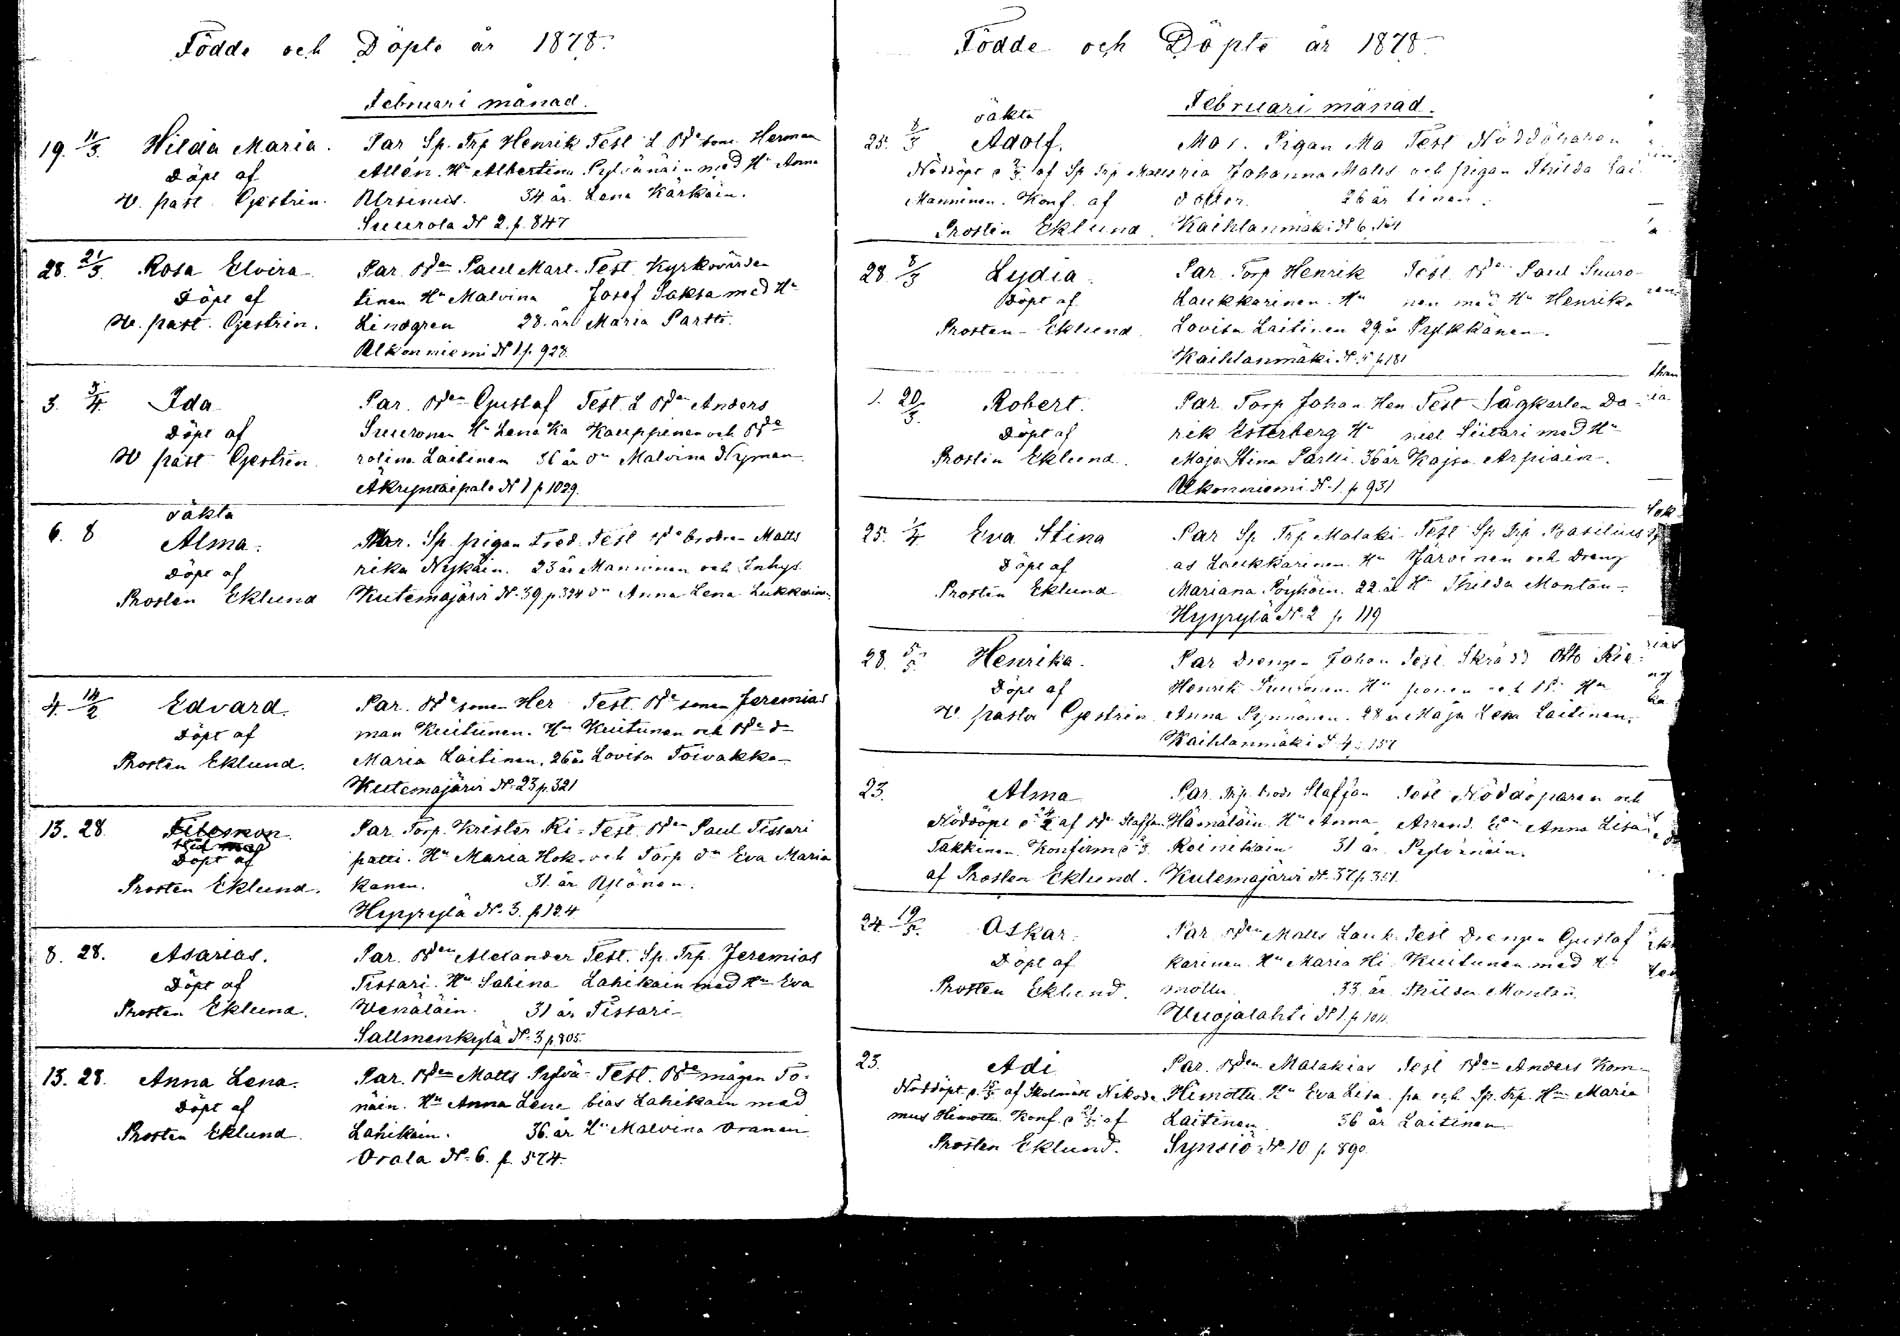 Födde och Döpte år 1878.
Februari månad.
19. 11/3. Hilda Maria. Par Sp. Trp Henrik Test L Bde sone Herman
Döpt af Allén. Hu Albertina Pylvänäin med Hu Anna
V. past. Gestrin. Ursinus. 34 år. Lena Kärkäin.
Suurola N 2. p. 847
28. 21/3. Rosa Elvira Par. Bden Paul Mart- Test. Kyrkovärden
Döpt af tinen Hu Malvina Josef Saksa med Hu
V. past. Gestrin. Lindgren 28. år Maria Partti.
Alkonniemi N 1 p. 928.
3. 3/4. Ida Par. Bden Gustaf Test. L Bden Anders
Döpt af Suuronen Hu Lena Ka Kauppinen och Bde
V past Gestrin rolina Laitinen 36 år dr Malvina Nyman
Äkryntaipale N 1 p 1029.
oäkta
6. 8 Alma. Mor. Sp. pigan Fred- Test Bde brodren Matts
Döpt af rika Nykäin. 23 år Manninen och Inhys
Prosten Eklund Kutemajärvi N. 39 p 324 dr Anna Lena Lukkarin
4. 14/2 Edvard. Par. Bde sonen Her- Test. Bde sonen Jeremias
Döpt af man Kuitunen. Hu Kuitunen och Bde dr
Prosten Eklund. Maria Laitinen. 26 år Lovisa Toivakka
Kutemajärvi N. 23 p. 321
13. 28. Filemon Par. Torp. Krister Ki- Test. Bden Paul Tissari
Döpt af patti. Hu Maria Hok- och Torp dr Eva Maria
Prosten Eklund. kanen. 31. år Ylönen.
Hyyrylä N. 3. p. 124
8. 28. Asarias. Par. Bden Alexander Test. Sp. Trp. Jeremias
Döpt af Tissari. Hu Sabina Lahikain med Hu Eva
Prosten Eklund. Venäläin. 31 år Tissari
Sallmenkylä N. 3 p 805.
13. 28. Anna Lena. Par. Bden Matts Pylvä- Test. Bde mågen To-
Döpt af näin. Hu Anna Lena bias Lahikain med
Prosten Eklund. Lahikain. 36. år Hu Malvina Oranen
Orala N. 6. p. 574.
Födde och Döpte år 1878.
Februari månad.
oäkta
25. 8/3 Adolf. Mor. Pigan Ma Test Nöddöparen
Nöddöpt af Sp Trp Matts ria Johanna Matts och pigan Thilda Lai
Manninen. Konf. af dotter. 26 år tinen.
Prosten Eklund. Kaihlanmäki N 6
28 8/3 Lydia. Par. Torp Henrik Test. Bden Paul Suuro-
Döpt af Laukkarinen. Hu nen med Hu Henrika
Prosten Eklund Lovisa Laitinen 29 år Pylkkänen.
Kaihlanmäki N. 5 p 181
1. 20/3. Robert. Par Torp Johan Hen- Test Sågkarlen Da-
Döpt af rik Esterberg Hu niel Siitari med Hu
Prosten Eklund. Maja Stina Partti. 36 år Kajsa Arpiain.
Alkonniemi N. 1. p 931
25. 1/4 Eva Stina Par Sp Trp Malaki- Test Sp Trp Basilius
Döpt af as Laukkarinen. Hu Järvinen och Dreng
Prosten Eklund Mariana Pöyhöin. 22 år Hu Thilda Montan
Hyyrylä N. 2 p. 119
28. 5/5. Henrika. Par Drengen Johan Test. Skrädd Otto Kia-
Döpt af Henrik Suuronen. Hu ponen
V. pastor Gestrin Anna Pynnönen. 28 år Maja Lena Laitinen.
Kaihlanmäki 4 157
23. Alma Par. Trp. brodr Staffan Test Nöddöparen och
Nöddöpt af Bde Staffan Hämäläin Hu Anna Arrend. Anna Lisa
Takkinen. Konfirm Roinikain 31 år Pylvänäin.
af Prosten Eklund. Kutemajärvi N. 37 p. 351
24 19/5. Oskar. Par Bden Matts Lauk- Test Drengen Gustaf
Döpt af karinen. Hu Maria Hi- Kuitunen med Hu
Prosten Eklund. mottu. 33 år. Thilda Montan.
Vuojalahti N 1. p 104.
23. Adi Par. Bden Malakias Test Bden Anders Kom-
Nöddöpt af Skolmäst Nikode Himottu. Hu Eva Lisa pa och Sp. Trp. Hu Maria
mus Himottu. Konf. af Laitinen 36 år Laitinen
Prosten Eklund. Synsiö N. 10 p. 890